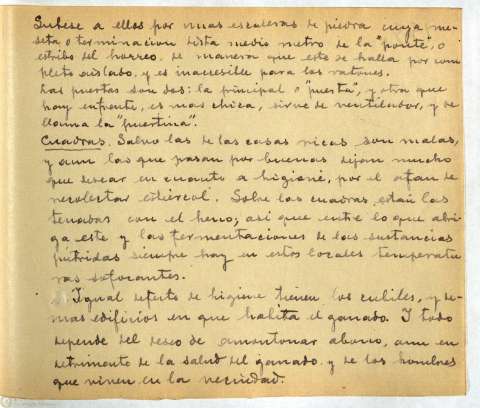 Subese a ellos por unas escaleras de piedra cuya me-
seta o terminacion dista medio metro de la "ponte", o
estribo del horreo. de manera que este se halla por com
pleto aislado. y es inaccesible para los ratones.
Las puertas son dos: la principal o "puerta", y otra que
hay enfrente, es mas chica, sirve de ventilador, y se
llama la "puertina".
Cuadras. Salvo las de las casas ricas son malas,
y aun las que pasan por buenas dejan mucho
que desear en cuanto a higiene, por el afan de
recolectar estiercol. Sobre las cuadras, estan las
tenadas con el heno; asi que entre lo que abri
ga este y las fermentaciones de las sustancias
putridas siempre hay en estos locales temperatu
ras sofocantes.
Igual defecto de higiene tienen los cubiles, y de-
mas edificios en que habita el ganado. I todo
depende del deseo de amontonar abono, aun en
detrimento de la salud del ganado y de los hombres
que viven en la vecindad.